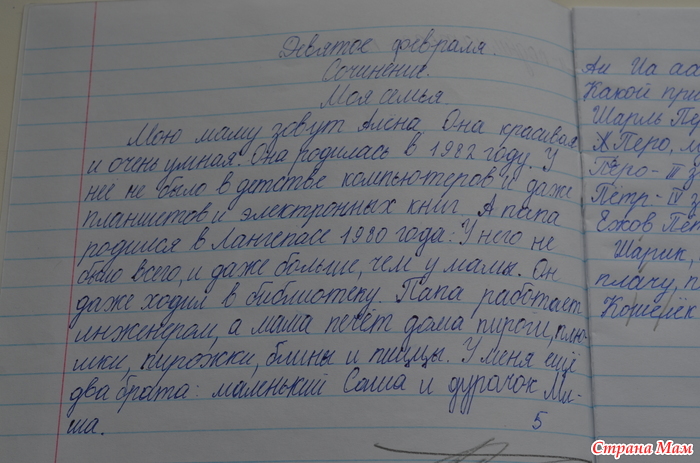 Девятое февраля.
Сочинение.
Моя семья.
Мою маму зовут Алёна. Она красивая
и очень умная. Она родилась в 1982 году. У
неё не было в детстве компьютеров и даже
планшетов и электронных книг. А папа
родился в Лангепасе 1980 года. У него не
было всего, и даже больше, чем у мамы. Он
даже ходил в библиотеку. Папа работает
инженером, а мама печёт дома пироги, плю-
шки, пирожки, блины и пиццы. У меня ещё
два брата: маленький Саша и дурачок Ми-
ша.
5
Аи Иа аа
Какой при
Шарль Пе
Х.Перо, м
Перо - III з
Пётр - IV з
Ежов Пёт
Шарик,
плачу, п
Кошелёк
Страна Мам